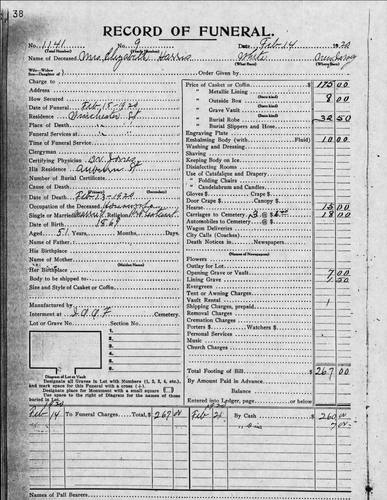 38
RECORD OF FUNERAL.
No. 1141 No. 9 Feb-14 1920
(Total Number) (Yearly Number)
Name of Deceased Mrs Elizabeth Harris White
(What Race) (Where Born)
Wife—Widow
Son—Daughter of
Order Given by
Charge to
Address
How Secured
Date of Funeral Feb-15-1920
Residence Winchester St
Place of Death
Funeral Services at
Time of Funeral Service
Clergyman
Certifying Physician Dr. Jones
His Residence Auburn St
Number of Burial Certificate
Cause of Death
Date of Death Feb-13-1920
Occupation of the Deceased Housewife
Single or Married Married Religion Protestant
Date of Birth 1869
Aged 51 Years, Months, Days.
Name of Father
His Birthplace
Name of Mother
(Maiden Name)
Her Birthplace
Body to be shipped to
Size and Style of Casket or Coffin
Manufactured by
Interment at I.O.O.F. Cemetery.
Lot or Grave No. Section No.
Diagram of Lot or Vault
Designate all Graves in Lot with Numbers (1, 2, 3, 4, etc.),
and mark space for this Funeral with a cross (+).
Designate place for Monument with a small square □
Use space to the right of Diagram for the names of those
buried in Lot.
Price of Casket or Coffin $ 175 00
" Metallic Lining
(State kind)
" Outside Box 8 00
(State kind)
" Grave Vault
(State kind)
" Burial Robe 32 50
(State kind)
" Burial Slippers and Hose
Engraving Plate
Embalming Body (with Fluid) 10 00
Washing and Dressing
Shaving
Keeping Body on Ice
Disinfecting Rooms
Use of Catafalque and Drapery
" Folding Chairs
" Candelabrum and Candles
Gloves $ Crape $
Door Crape $ Candles $
Hearse 15 00
Carriages to Cemetery 3 @ $6.00 18 00
Automobiles to Cemetery @ $
Wagon Deliveries
City Calls (Coaches)
Death Notices in Newspapers
(Names of Newspapers)
Flowers
Outlay for Lot
Opening Grave or Vault 7 00
Lining Grave 1 50
Evergreen
Tent or Awning Charges
Vault Rental
Shipping Charges, prepaid
Removal Charges
Cremation Charges
Porters $ Watchers $
Personal Services
Music
Church Charges
Total Footing of Bill $ 267 00
By Amount Paid in Advance
Balance
Entered into Ledger, page or below.
1920 1920
Feb 14 To Funeral Charges $ 267 00 Feb 25 By Cash $ 260 00
" Dis 7 00
Names of Pall Bearers